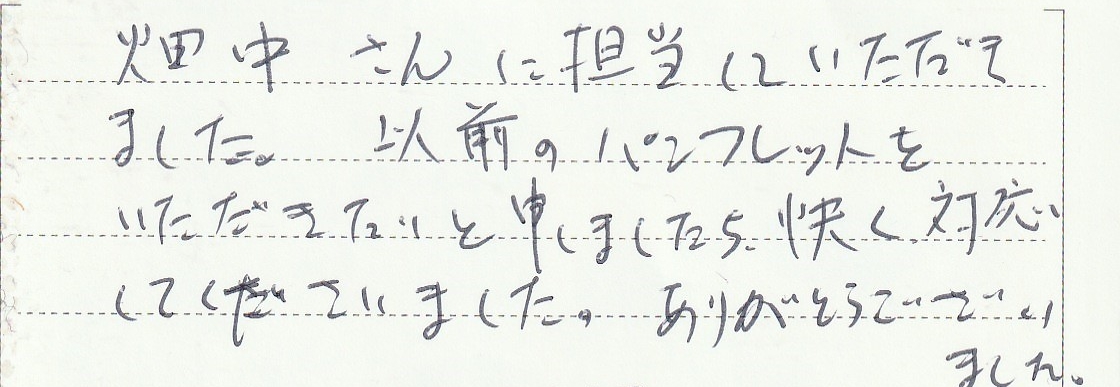 畑中さんに担当していただき
ました。以前のパンフレットを
いただきたいと申しましたら、快く対応
してくださいました。ありがとうございい
ました。